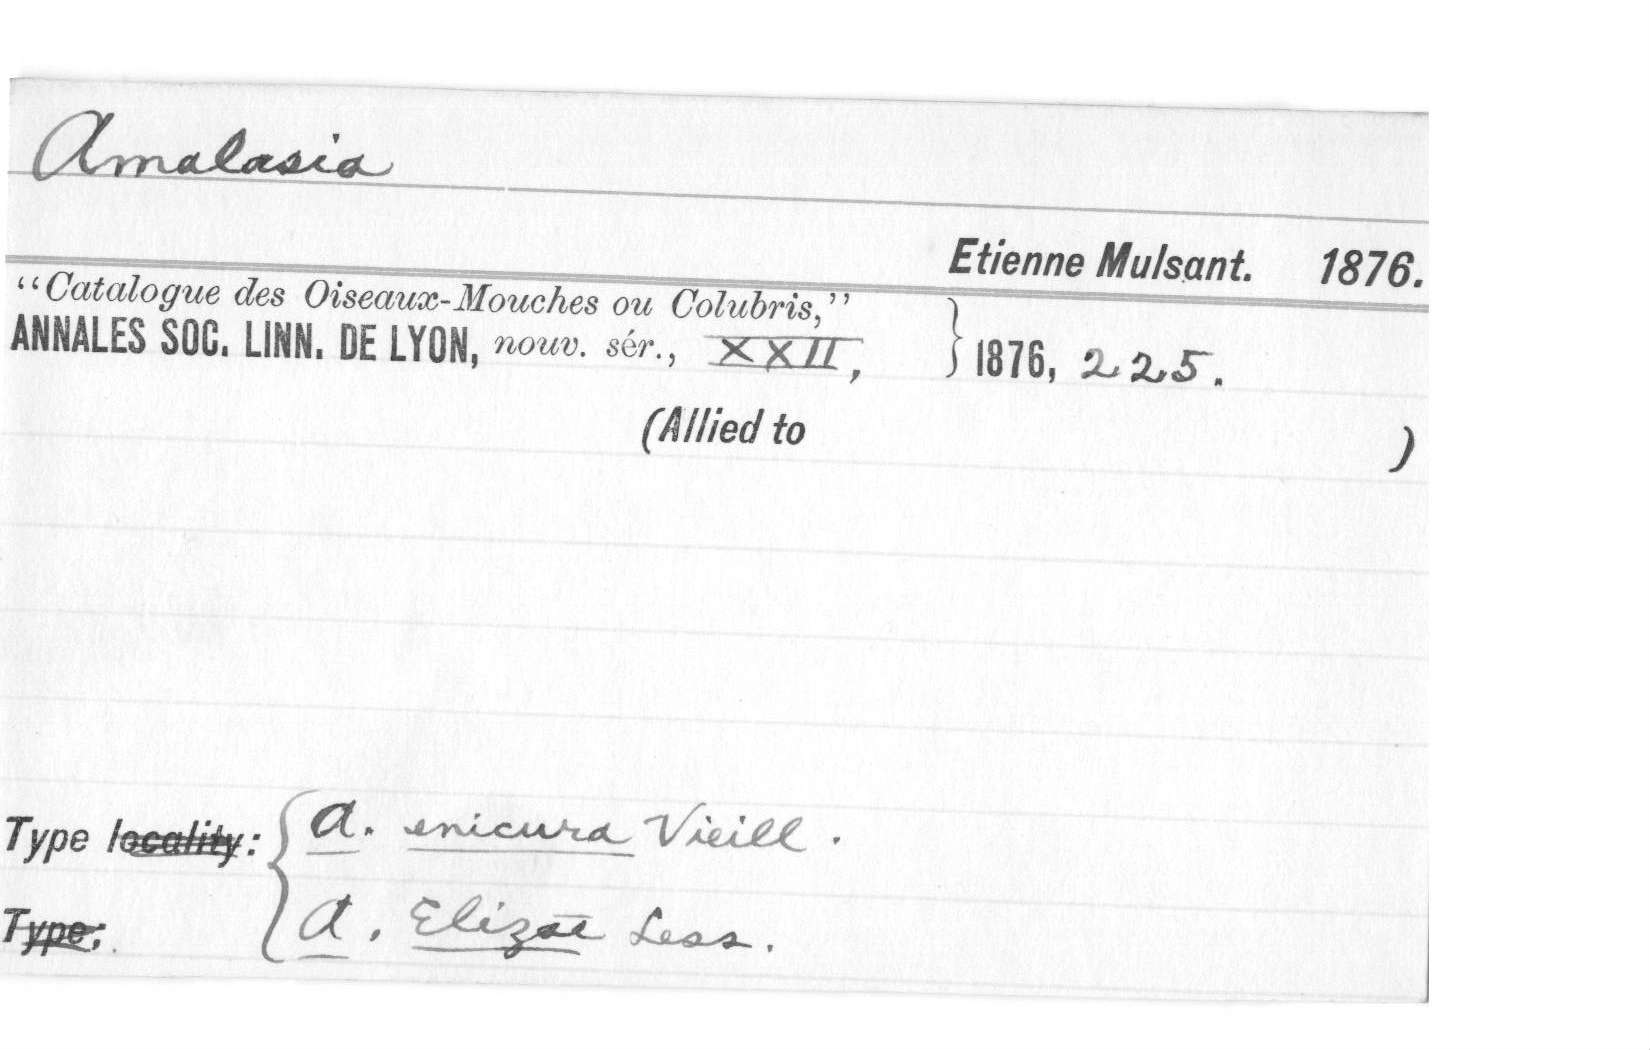 Amalasia
Etienne Mulsant. 1876.
“Catalogue des Oiseaux-Mouches ou Colubris,”
ANNALES SOC. LINN. DE LYON, nouv. sér., XXII, } 1876, 225.
(Allied to )
Type locality: { A. enicura Vieill.
Type: A. Elizæ Less.